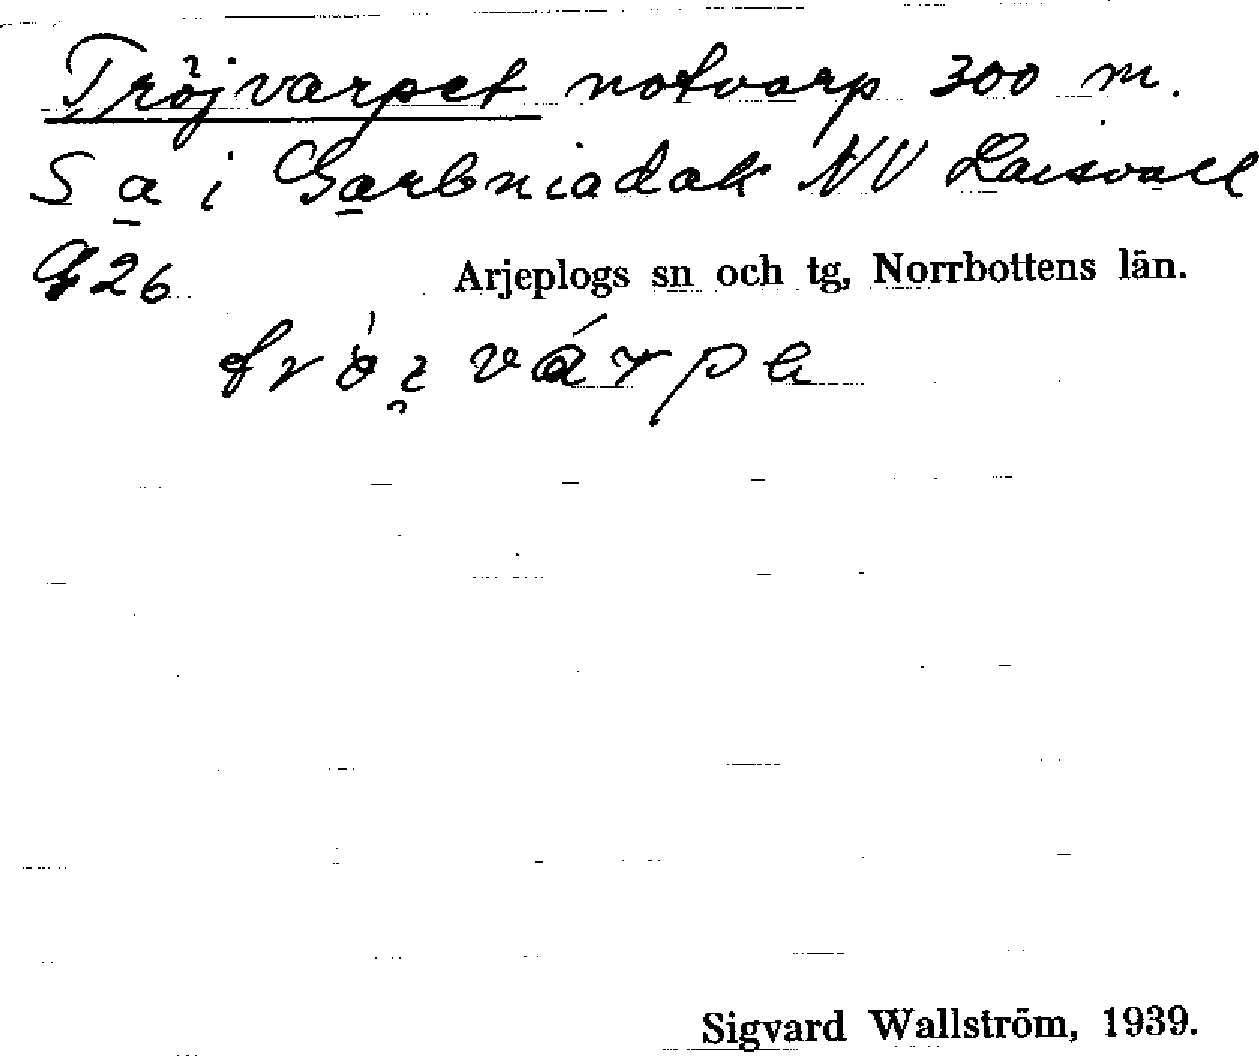 Tröjvarpet notvarp 300 m.
S a i Garbniadak NV Laisvall
G26 Arjeplogs sn och tg, Norrbottens län.
Sigvard Wallström, 1939.